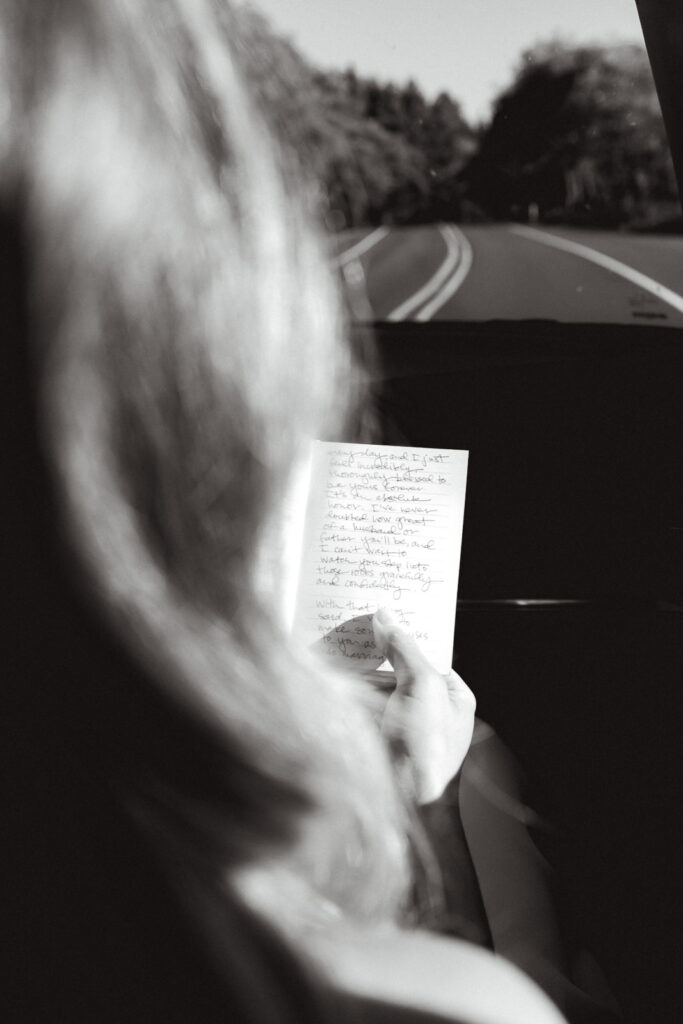 every day and I just
feel incredibly,
thoroughly blessed to
be yours forever.
It's an absolute
honor. I've never
doubted how great
of a husband or
father you'll be, and
I can't wait to
watch you step into
those roles gracefully
and confidently.
With that
said, I to
make some
to you as